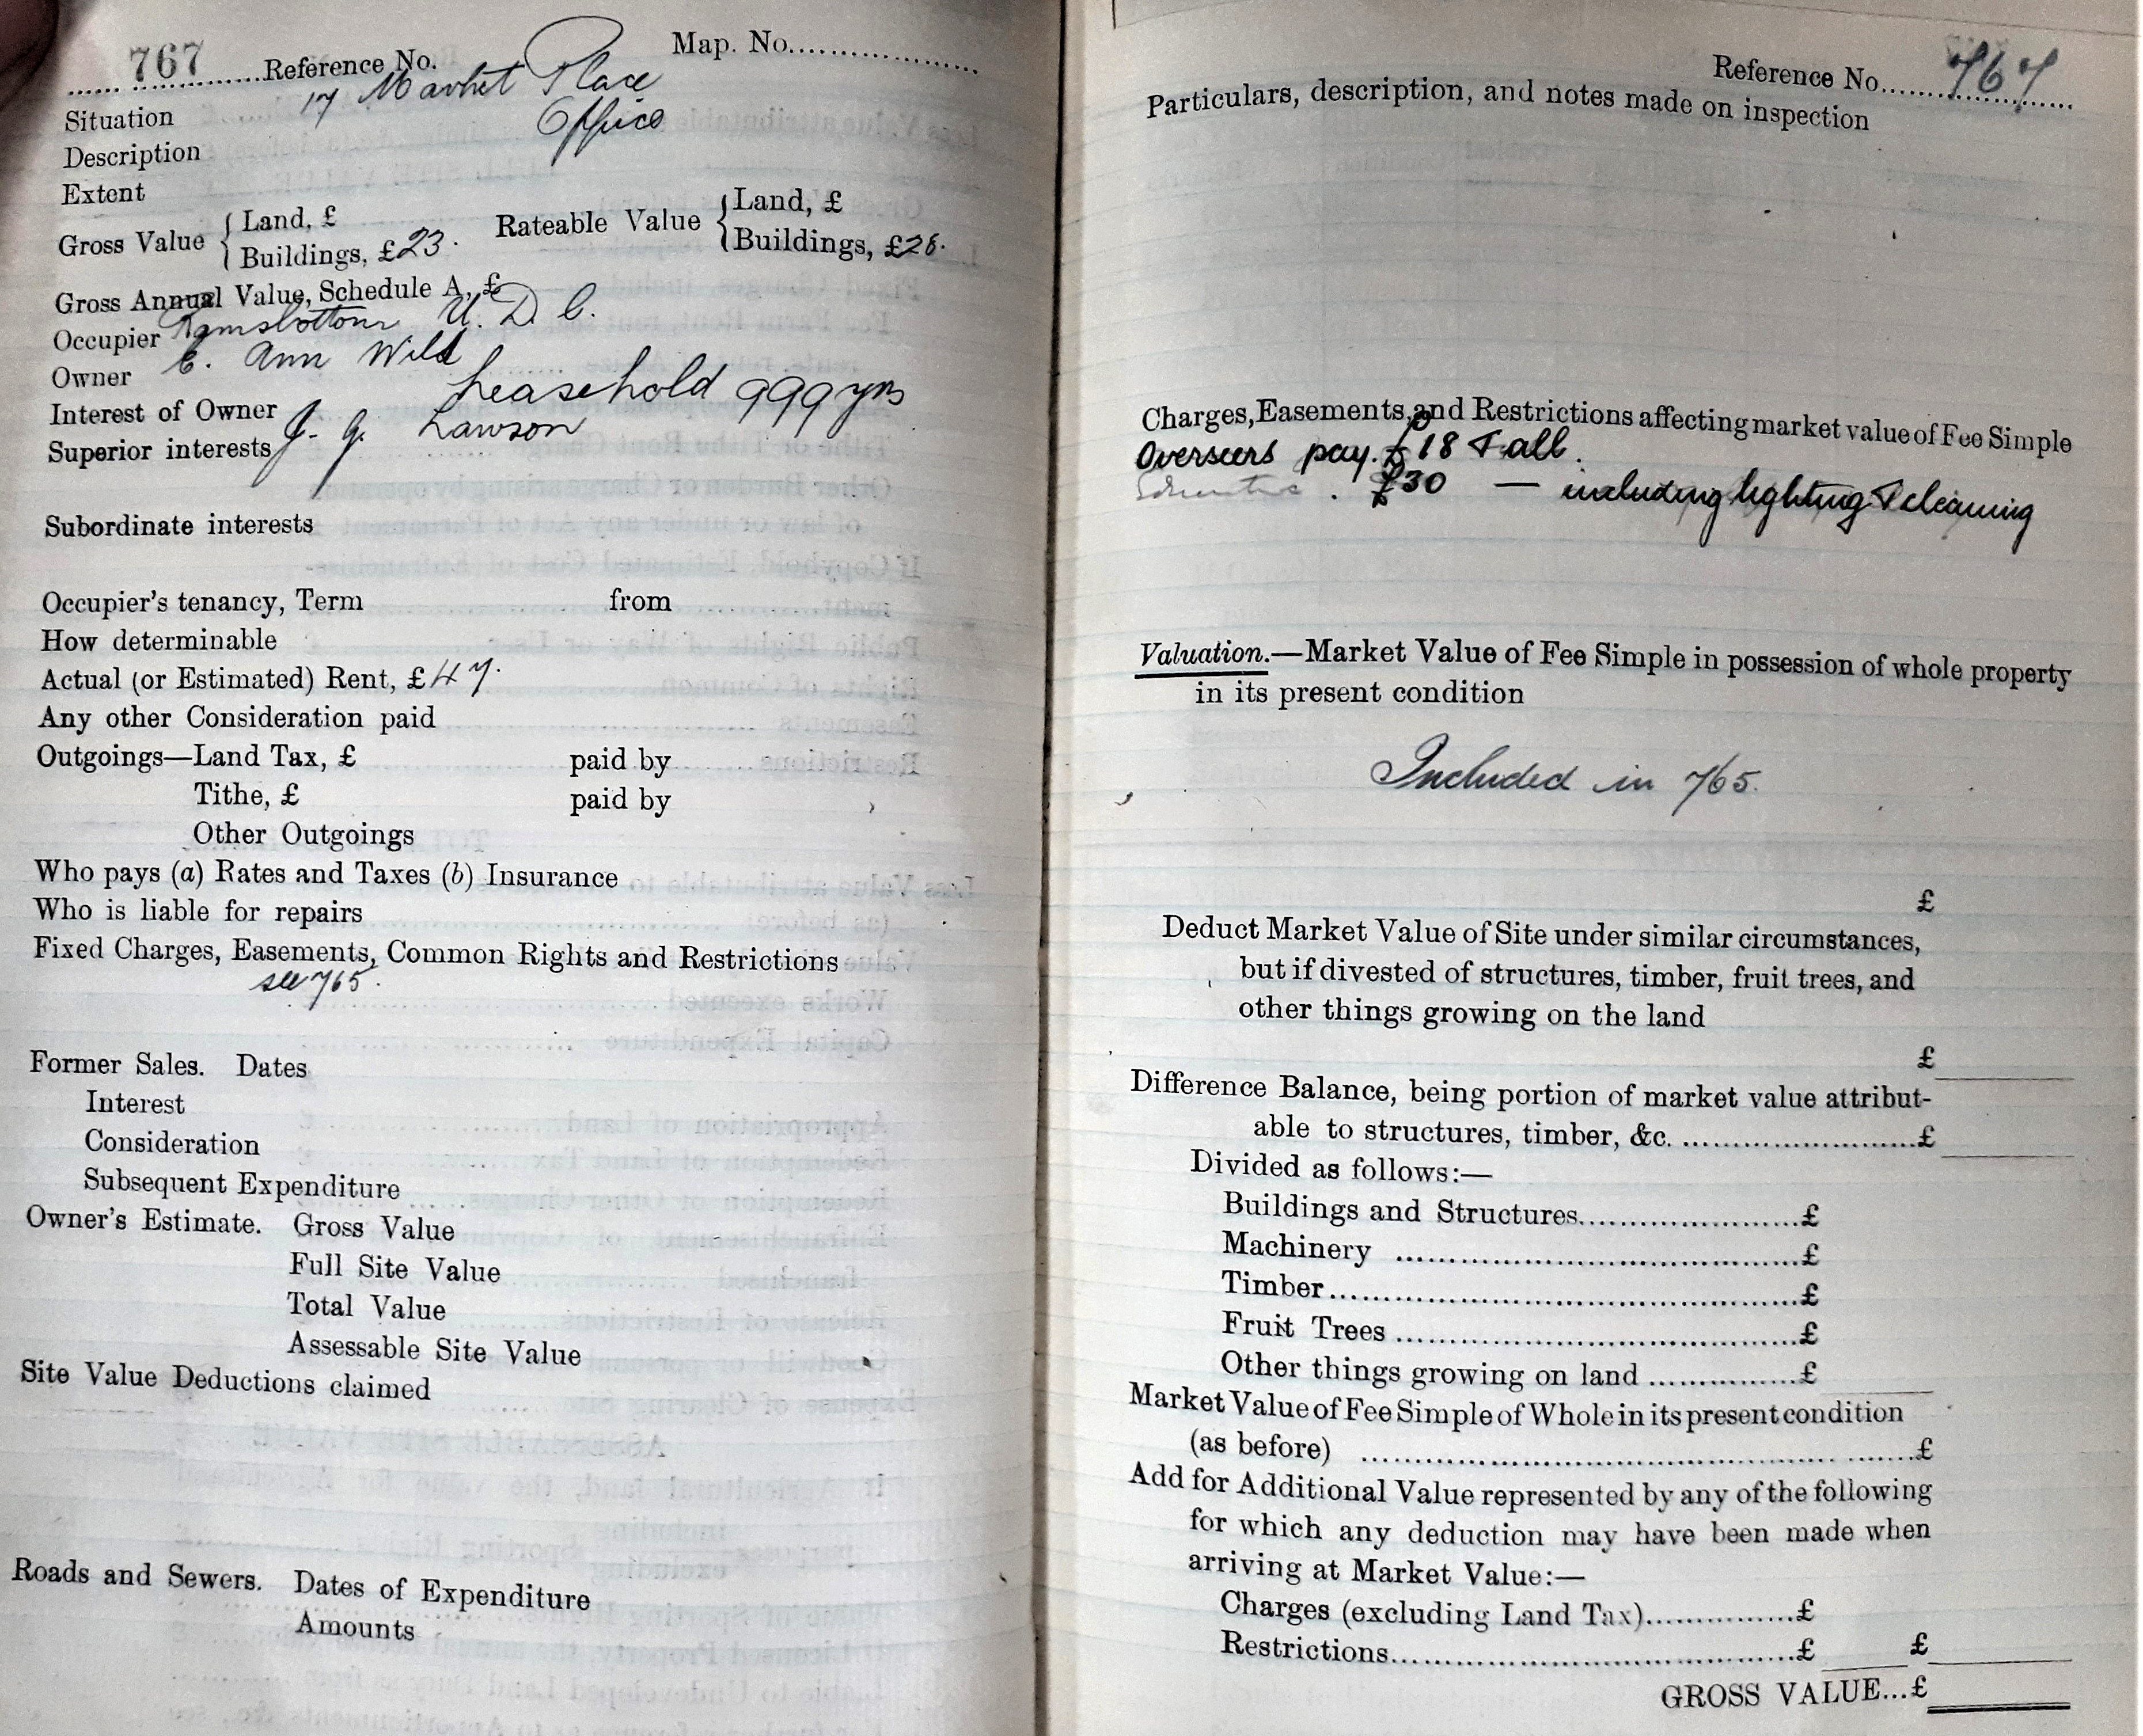 767 ..........Reference No. Map. No....................
Situation 17 Market Place
Description Office
Extent
Gross Value { Land, £ Rateable Value { Land, £
Buildings, £23. Buildings, £28.
Gross Annual Value, Schedule A, £
Occupier Ramsbottom U. D. C.
Owner E. Ann Wild
Interest of Owner Leasehold 999 yrs
Superior interests J. G. Lawson
Subordinate interests
Occupier's tenancy, Term from
How determinable
Actual (or Estimated) Rent, £47.
Any other Consideration paid
Outgoings—Land Tax, £ paid by
Tithe, £ paid by
Other Outgoings
Who pays (a) Rates and Taxes (b) Insurance
Who is liable for repairs
Fixed Charges, Easements, Common Rights and Restrictions
see 765.
Former Sales. Dates
Interest
Consideration
Subsequent Expenditure
Owner's Estimate. Gross Value
Full Site Value
Total Value
Assessable Site Value
Site Value Deductions claimed
Roads and Sewers. Dates of Expenditure
Amounts
Reference No. 767
Particulars, description, and notes made on inspection
Charges, Easements, and Restrictions affecting market value of Fee Simple
Overseers pay. £18 & all.
£30 — including lighting & cleaning
Valuation.—Market Value of Fee Simple in possession of whole property
in its present condition
Included in 765.
£
Deduct Market Value of Site under similar circumstances,
but if divested of structures, timber, fruit trees, and
other things growing on the land
£
Difference Balance, being portion of market value attribut-
able to structures, timber, &c. ........................£
Divided as follows:—
Buildings and Structures......................£
Machinery ........................................£
Timber..............................................£
Fruit Trees ........................................£
Other things growing on land ...............£
Market Value of Fee Simple of Whole in its present condition
(as before) ........................................................£
Add for Additional Value represented by any of the following
for which any deduction may have been made when
arriving at Market Value:—
Charges (excluding Land Tax)...............£
Restrictions..........................................£ £
GROSS VALUE...£